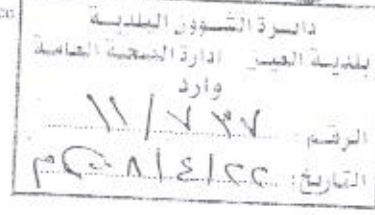 دائرة الشؤون البلدية
بلدية العين ادارة الصحة العامة
وارد
الرقم: ١١/٧٣٧
التاريخ: ٢٠٠٨/٤/٢٢م